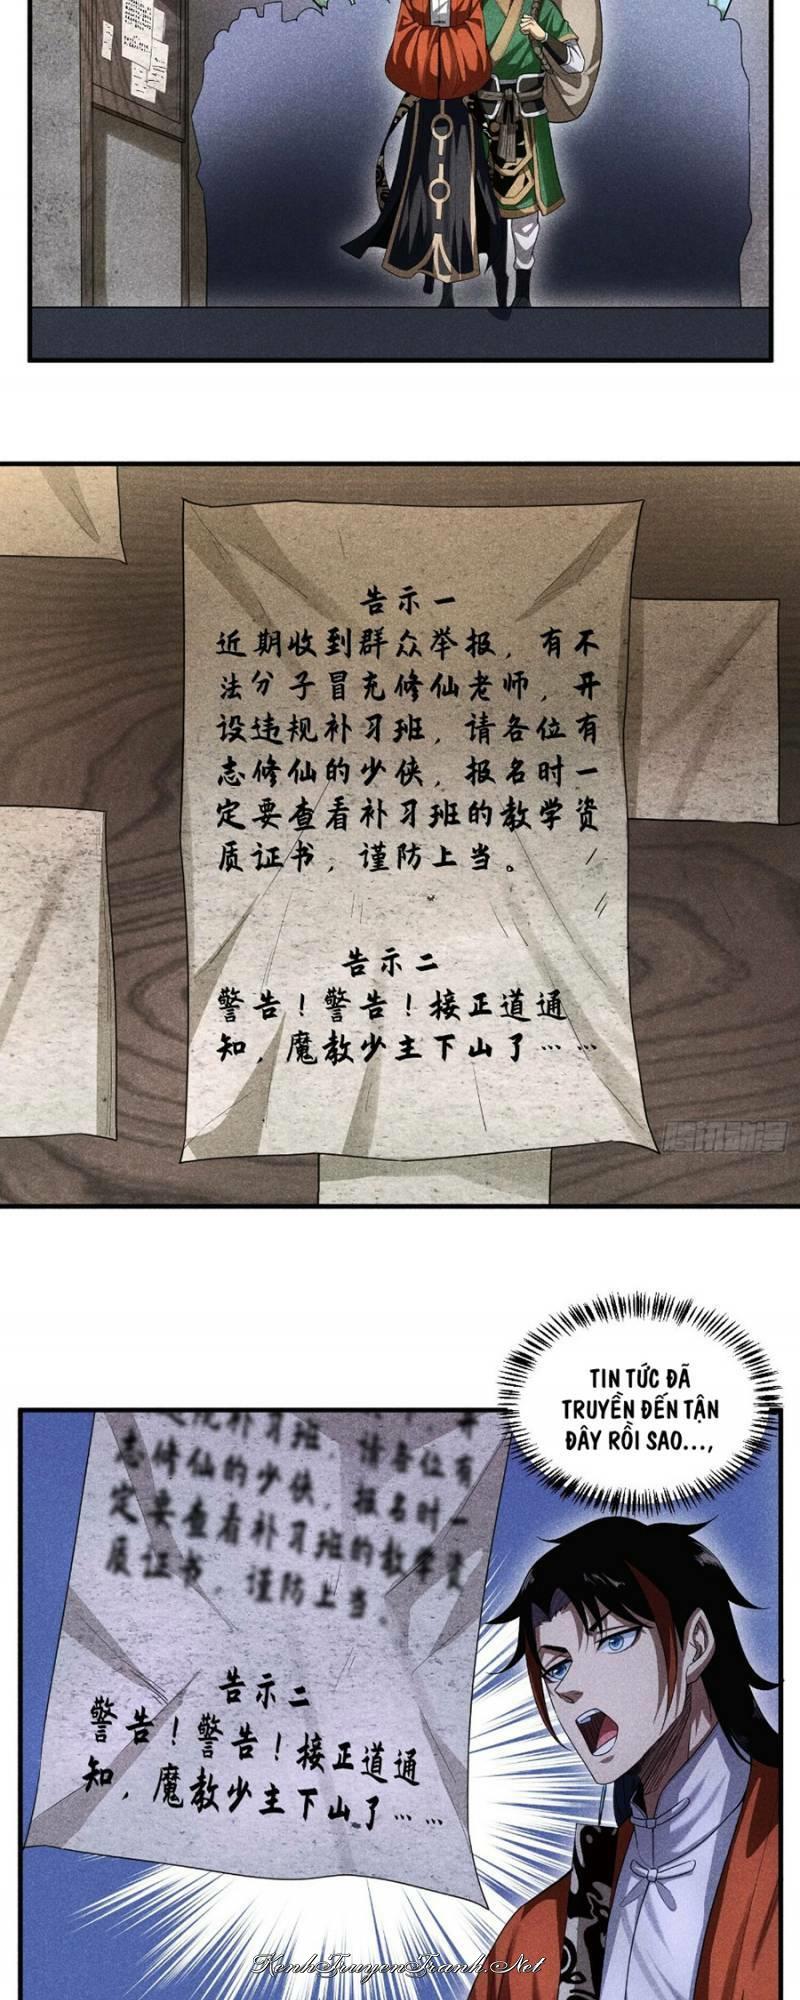 告示一
近期收到群众举报，有不
法分子冒充修仙老师，开
设违规补习班，请各位有
志修仙的少侠，报名时一
定要查看补习班的教学资
质证书，谨防上当。
告示二
警告！警告！接正道通
知，魔教少主下山了……
TIN TỨC ĐÃ
TRUYỀN ĐẾN TẬN
ĐÂY RỒI SAO...,
志修仙的少侠，报名时一
定要查看补习班的教学资
质证书，谨防上当。
告示二
警告！警告！接正道通
知，魔教少主下山了……
KenhTruyenTranh.Net